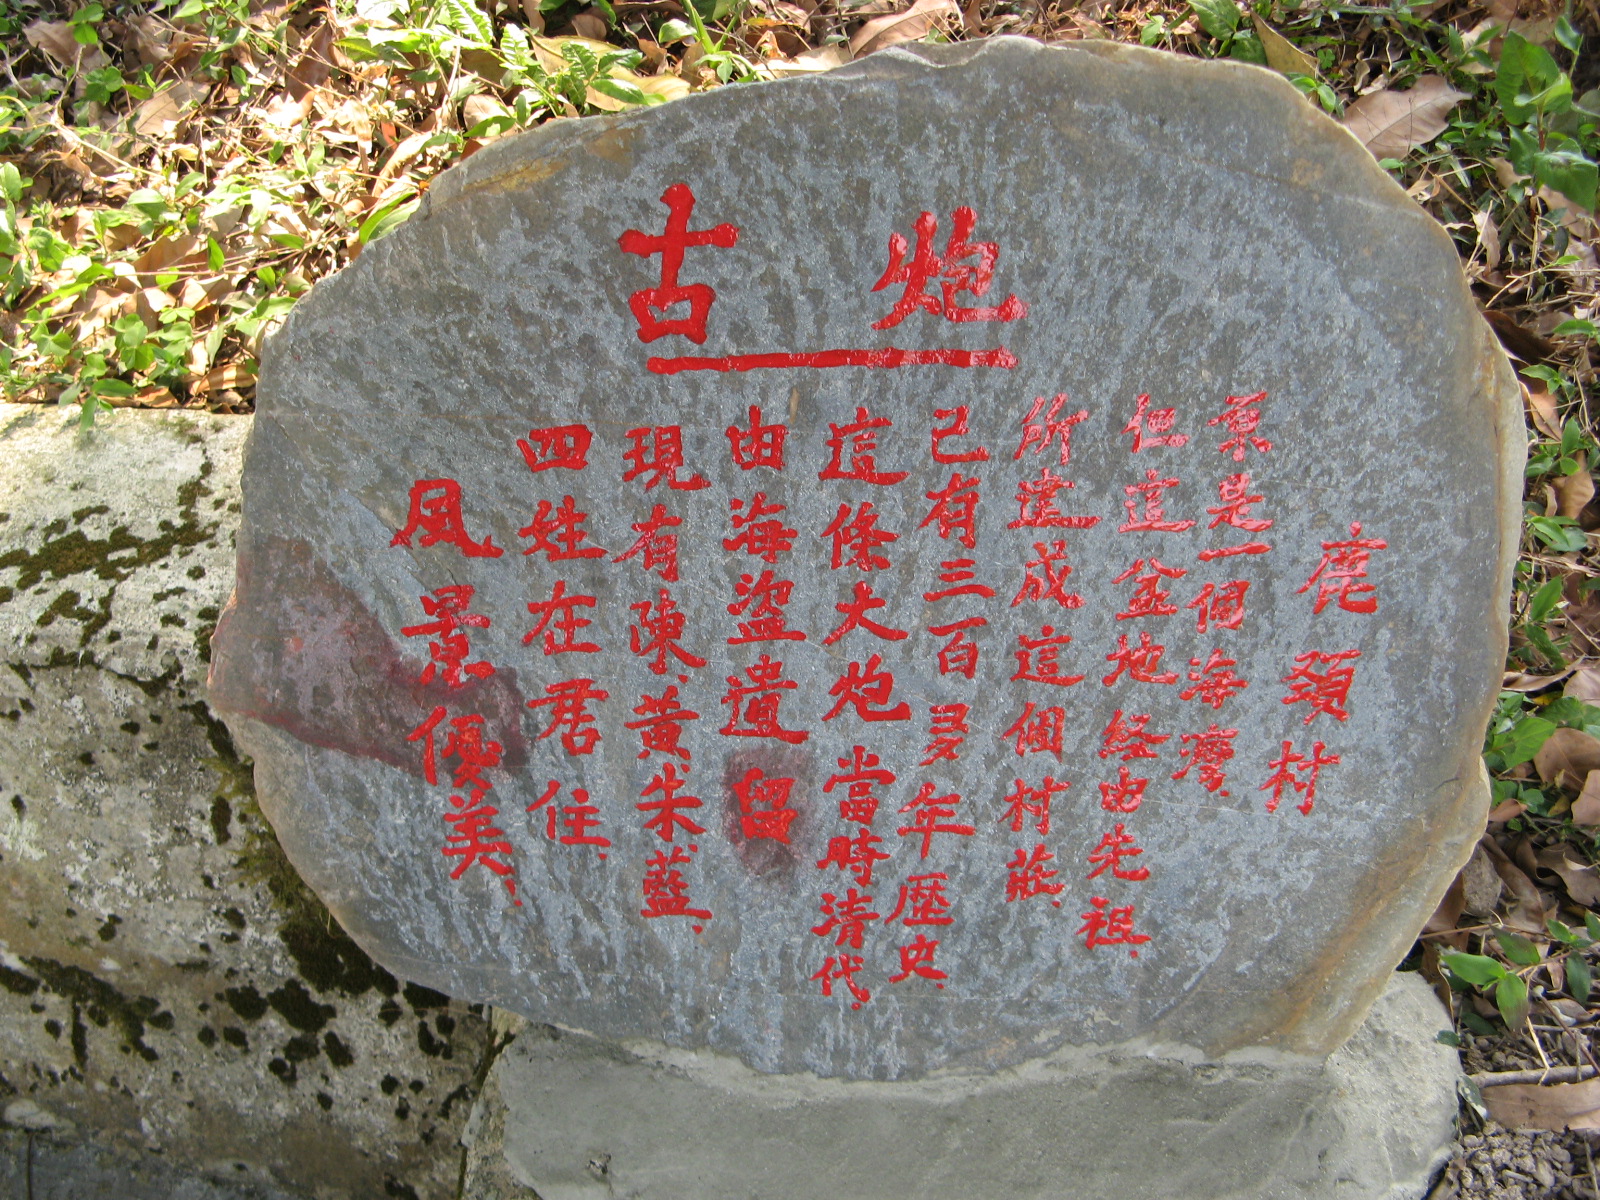 古炮
鹿頸村
原是一個海灣.
但這盆地経由先祖.
所建成這個村莊.
已有三百多年歷史.
這條大炮當時清代.
由海盜遺留
現有陳.黃.朱.藍.
四姓在君住.
風景優美.